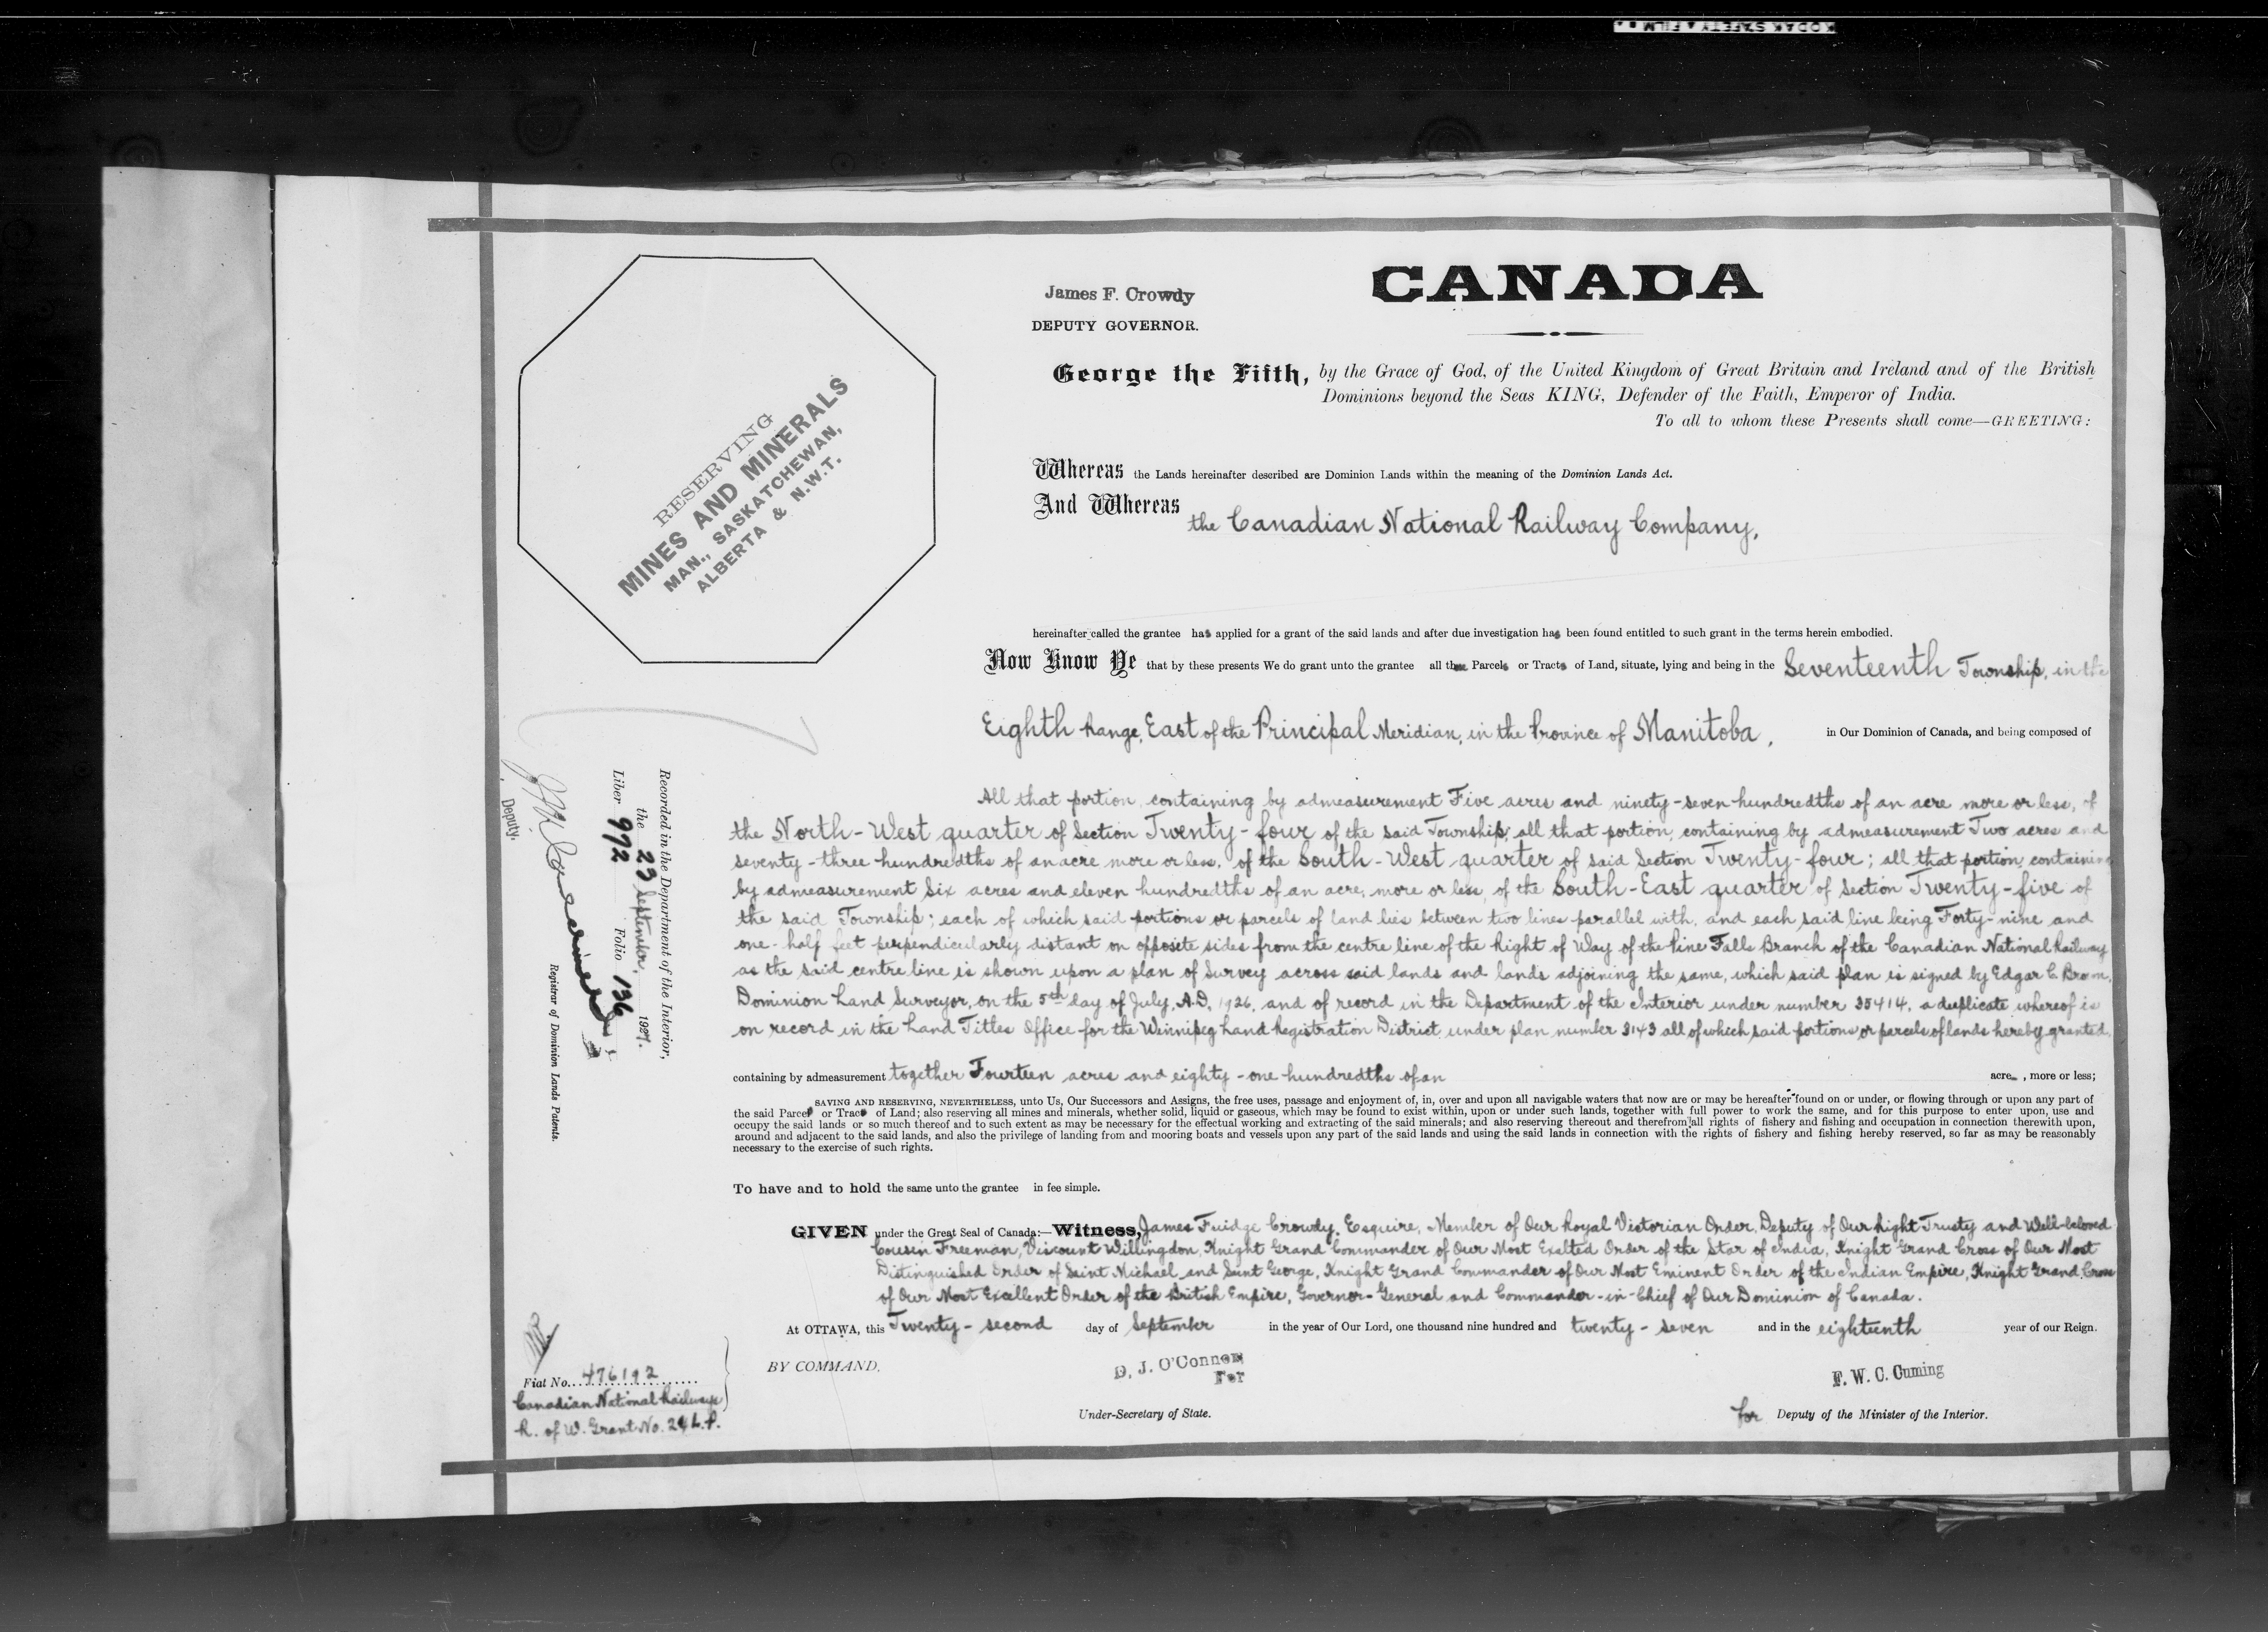 KODAK SAFETY FILM
CANADA
James F. Crowdy
DEPUTY GOVERNOR.
George the Fifth, by the Grace of God, of the United Kingdom of Great Britain and Ireland and of the British
Dominions beyond the Seas KING, Defender of the Faith, Emperor of India.
To all to whom these Presents shall come—GREETING:
RESERVING
MINES AND MINERALS
MAN., SASKATCHEWAN,
ALBERTA & N.W.T.
Whereas the Lands hereinafter described are Dominion Lands within the meaning of the Dominion Lands Act.
And Whereas the Canadian National Railway Company,
hereinafter called the grantee has applied for a grant of the said lands and after due investigation has been found entitled to such grant in the terms herein embodied.
Now Know Ye that by these presents We do grant unto the grantee all the Parcels or Tracts of Land, situate, lying and being in the Seventeenth Township, in the
Eighth Range, East of the Principal Meridian, in the Province of Manitoba, in Our Dominion of Canada, and being composed of
All that portion, containing by admeasurement Five acres and ninety-seven hundredths of an acre more or less, of
the North-West quarter of Section Twenty-four of the said Township; all that portion, containing by admeasurement Two acres and
seventy-three hundredths of an acre more or less, of the South-West quarter of said Section Twenty-four; all that portion, containing
by admeasurement Six acres and eleven hundredths of an acre, more or less, of the South-East quarter of Section Twenty-five of
the said Township; each of which said portions or parcels of land lies between two lines parallel with, and each said line being Forty-nine and
one-half feet perpendicularly distant on opposite sides from the centre line of the Right of Way of the Pine Falls Branch of the Canadian National Railway
as the said centre line is shown upon a plan of Survey across said lands and lands adjoining the same, which said plan is signed by Edgar C. Brown,
Dominion Land Surveyor, on the 5th day of July, A.D. 1926, and of record in the Department of the Interior under number 35414, a duplicate whereof is
on record in the Land Titles Office for the Winnipeg Land Registration District under plan number 3143 all of which said portions or parcels of lands hereby granted,
containing by admeasurement together Fourteen acres and eighty-one hundredths of an acre, more or less;
SAVING AND RESERVING, NEVERTHELESS, unto Us, Our Successors and Assigns, the free uses, passage and enjoyment of, in, over and upon all navigable waters that now are or may be hereafter found on or under, or flowing through or upon any part of
the said Parcel or Tract of Land; also reserving all mines and minerals, whether solid, liquid or gaseous, which may be found to exist within, upon or under such lands, together with full power to work the same, and for this purpose to enter upon, use and
occupy the said lands or so much thereof and to such extent as may be necessary for the effectual working and extracting of the said minerals; and also reserving thereout and therefrom all rights of fishery and fishing and occupation in connection therewith upon,
around and adjacent to the said lands, and also the privilege of landing from and mooring boats and vessels upon any part of the said lands and using the said lands in connection with the rights of fishery and fishing hereby reserved, so far as may be reasonably
necessary to the exercise of such rights.
To have and to hold the same unto the grantee in fee simple.
GIVEN under the Great Seal of Canada:—Witness, James Fuidge Crowdy, Esquire, Member of Our Royal Victorian Order, Deputy of Our Right Trusty and Well-beloved
Cousin Freeman, Viscount Willingdon, Knight Grand Commander of Our Most Exalted Order of the Star of India, Knight Grand Cross of Our Most
Distinguished Order of Saint Michael and Saint George, Knight Grand Commander of Our Most Eminent Order of the Indian Empire, Knight Grand Cross
of Our Most Excellent Order of the British Empire, Governor-General and Commander-in-Chief of Our Dominion of Canada.
At OTTAWA, this Twenty-second day of September in the year of Our Lord, one thousand nine hundred and twenty-seven and in the eighteenth year of our Reign.
BY COMMAND,
D. J. O'Connor
For
Under-Secretary of State.
F. W. C. Cuming
for Deputy of the Minister of the Interior.
Recorded in the Department of the Interior,
the 23 September, 1927.
Liber 992 Folio 136
Deputy,
Registrar of Dominion Lands Patents.
Fiat No. 476192
Canadian National Railways
R. of W. Grant No. 24 L.P.